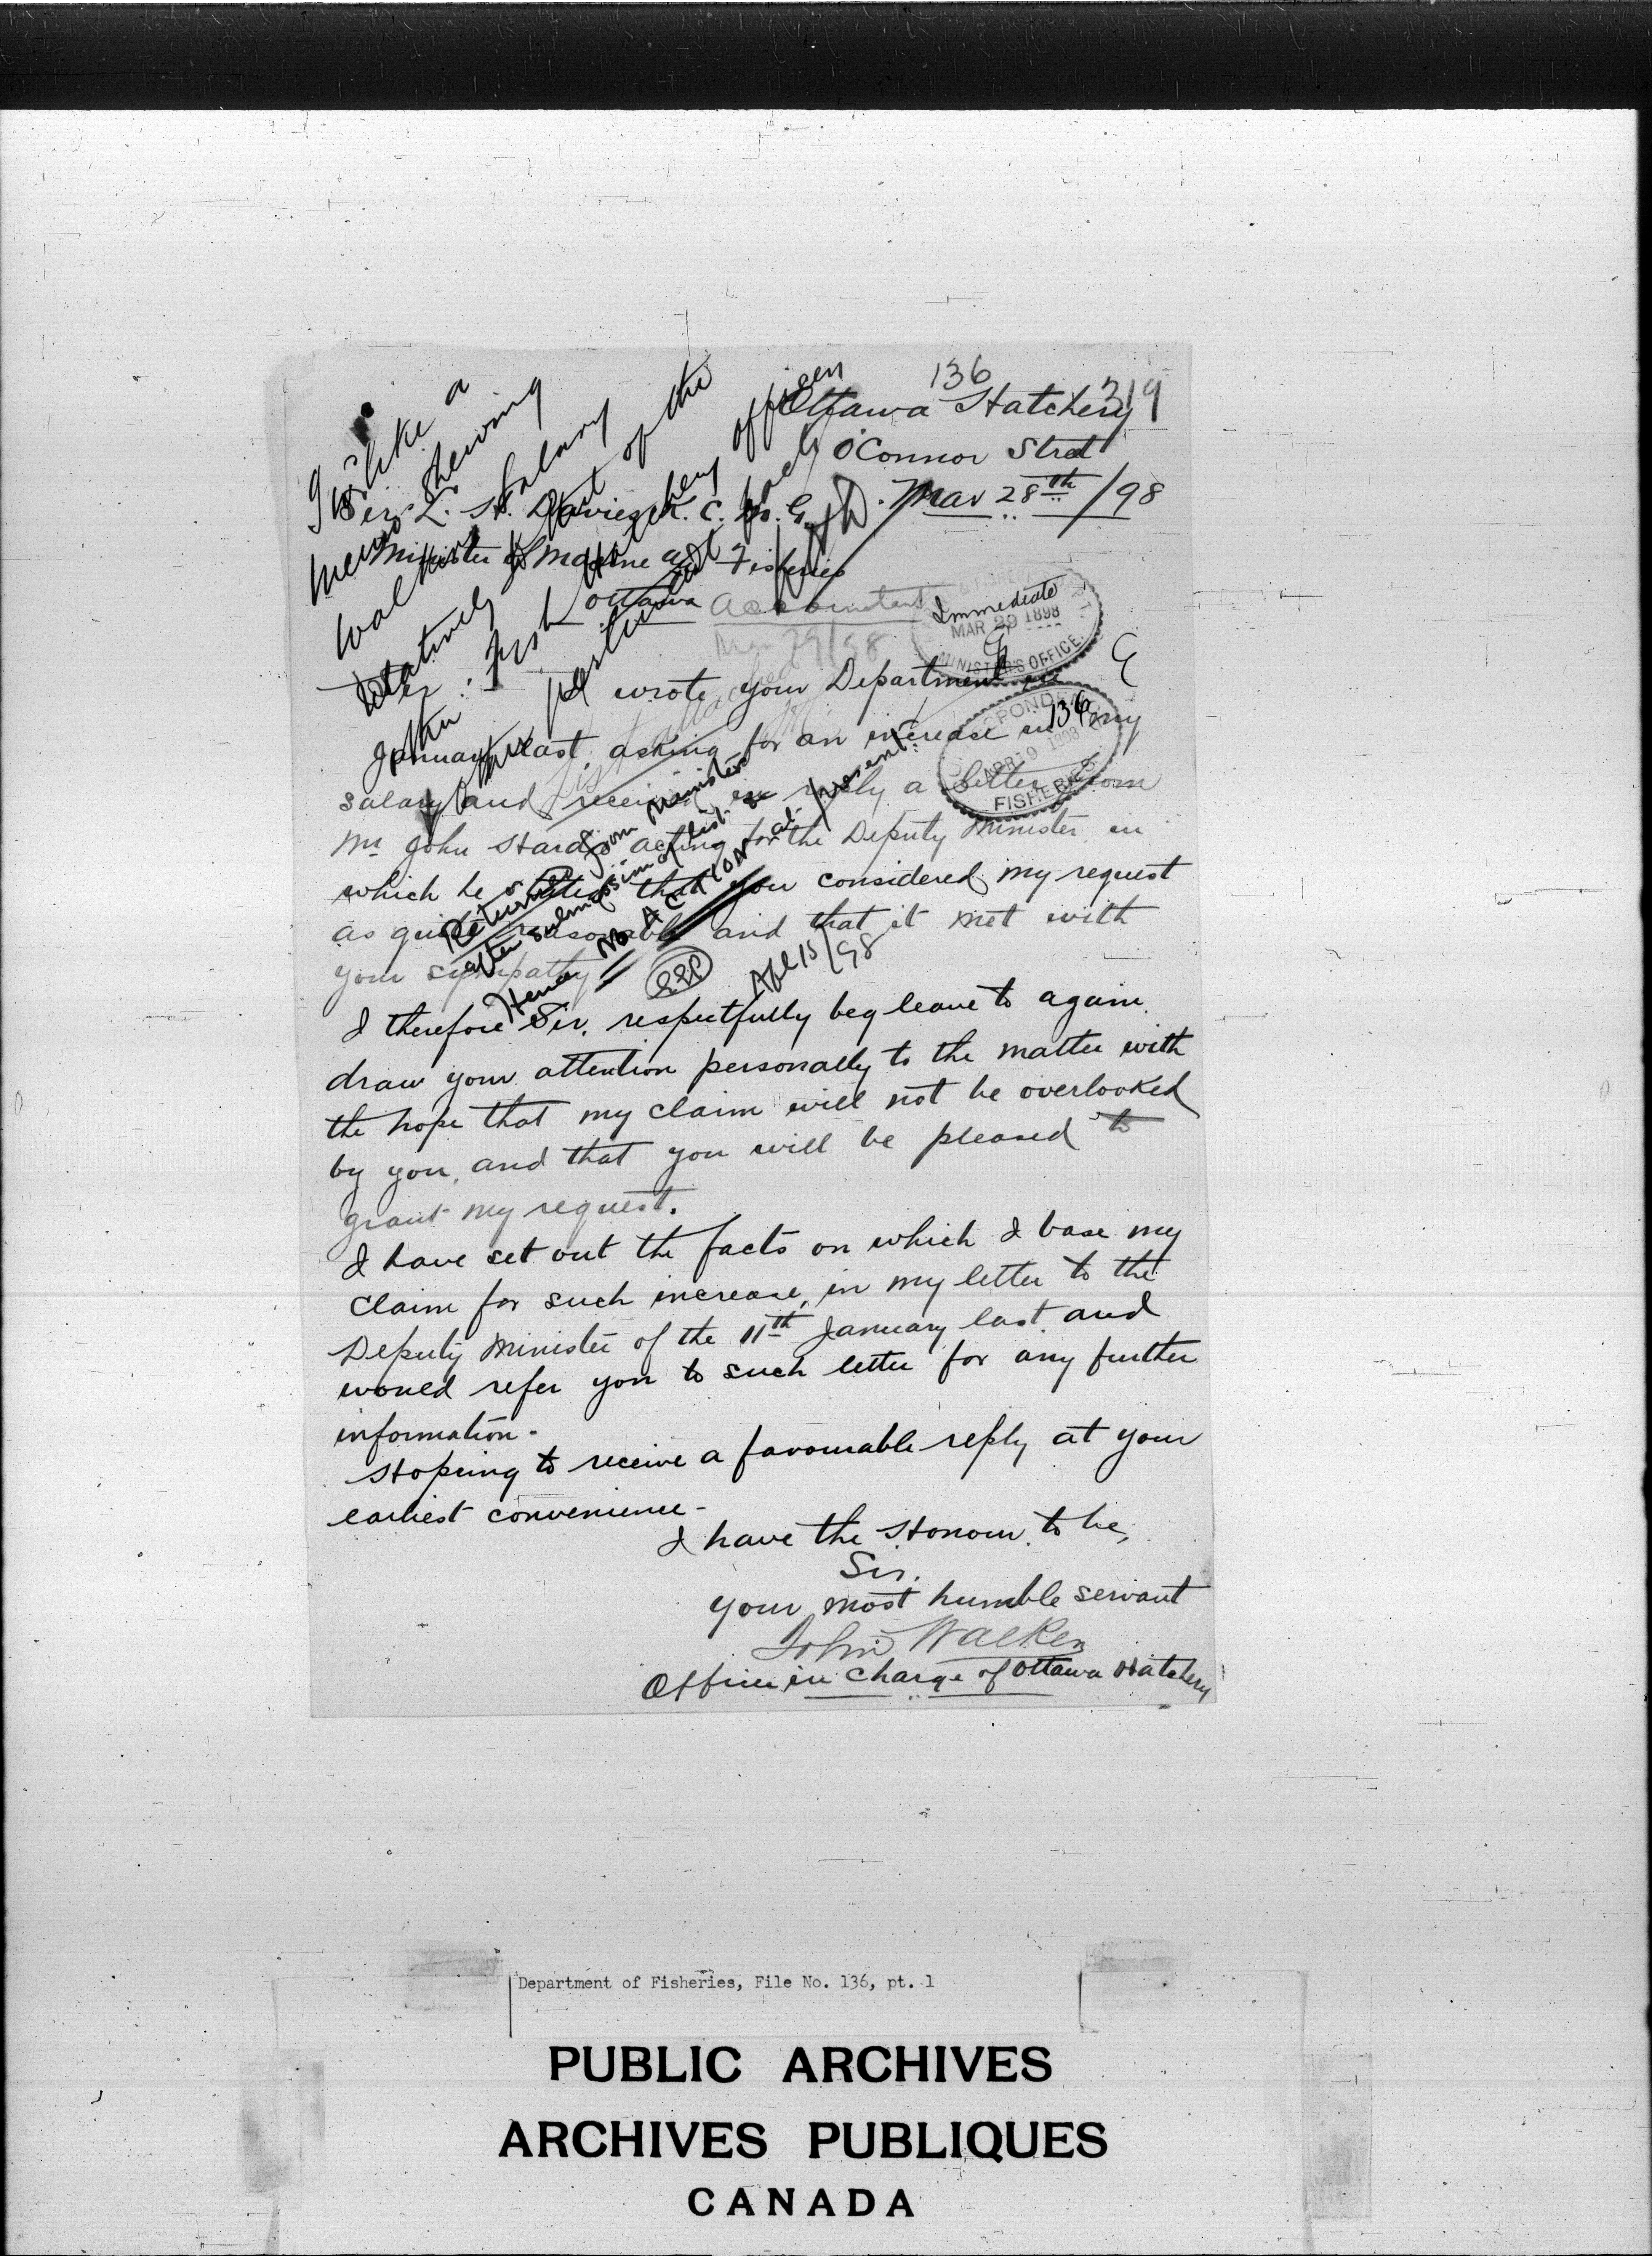 136
319
Ottawa Hatchery
O'Connor Street
Mar 28th/98
Sir L. H. Davies K. C. M. G.
Minister of Marine and Fisheries
Ottawa
Accountant
Mar 29/98
Immediate
MAR 29 1898
MINISTER'S OFFICE
I should like a
memo shewing
Walkers Salary
relatively to that of the
other Fish Hatchery officers
particularly
LHD
Sir:
I wrote your Department in
136
APR 19 1898
FISHERIES
January last, asking for an increase in my
salary and received in reply a letter from
Mr John Hardie acting for the Deputy Minister in
which he states that you considered my request
as quite reasonable and that it met with
your sympathy
Returned from Minister
after submission of list.
Hence No Action at present.
Apl 15/98
I therefore Sir, respectfully beg leave to again
draw your attention personally to the matter with
the hope that my claim will not be overlooked
by you, and that you will be pleased to
grant my request.
I have set out the facts on which I base my
claim for such increase, in my letter to the
Deputy Minister of the 11th January last, and
would refer you to such letter for any further
information-
Hopeing to receive a favourable reply at your
earliest convenience-
I have the Honour to be,
Sir.
your most humble servant
John Walker
Officer in charge of Ottawa Hatchery
Department of Fisheries, File No. 136, pt. 1
PUBLIC ARCHIVES
ARCHIVES PUBLIQUES
CANADA